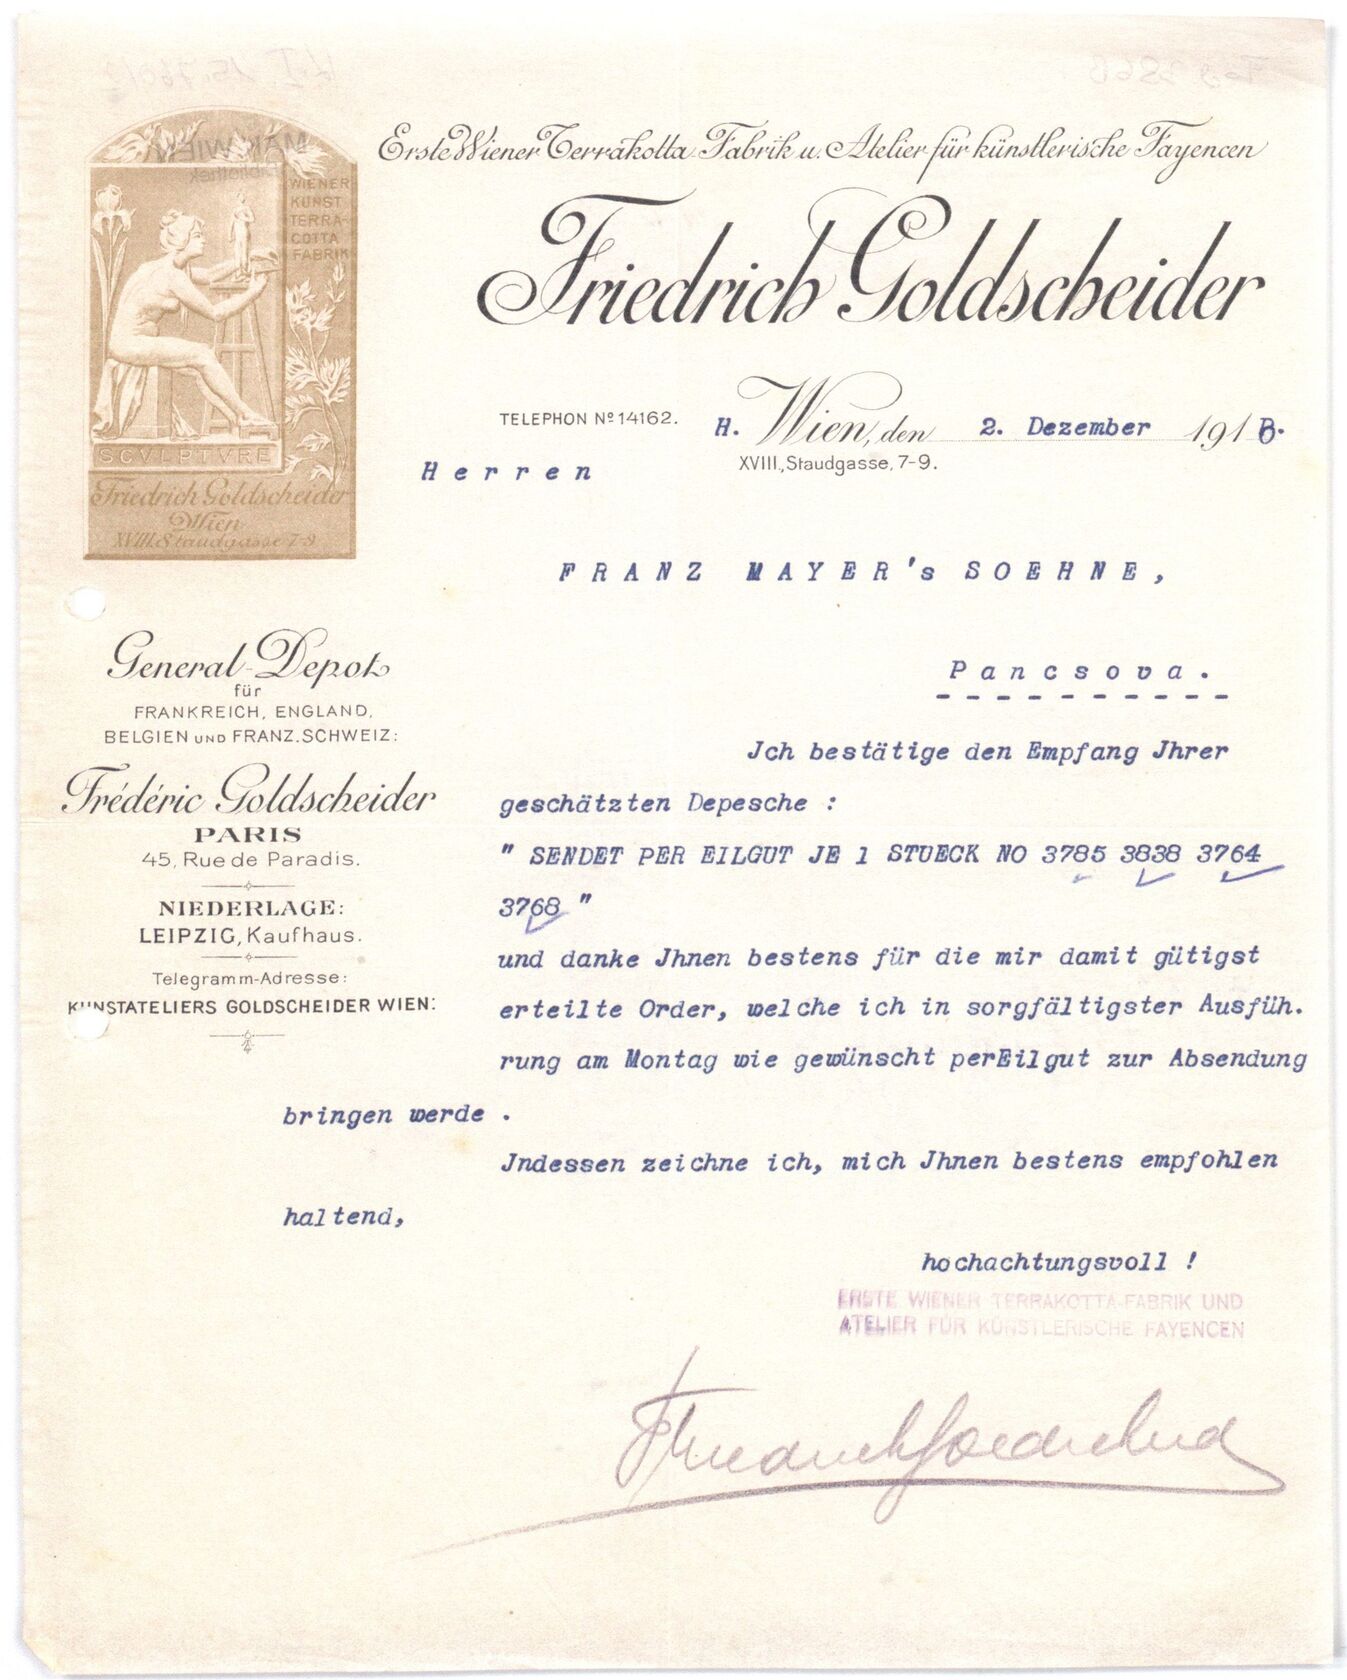 Erste Wiener Terrakotta-Fabrik u. Atelier für künstlerische Fayencen
Friedrich Goldscheider
WIENER
KUNST
TERRA-
COTTA
FABRIK
SCVLPTVRE
Friedrich Goldscheider
Wien
XVIII. Staudgasse 7-9
TELEPHON Nº 14162.
H. Wien, den 2. Dezember 191
XVIII., Staudgasse, 7-9.
Herren
FRANZ MAYER's SOEHNE,
Pancsova.
General-Depot
für
FRANKREICH, ENGLAND,
BELGIEN UND FRANZ. SCHWEIZ:
Frédéric Goldscheider
PARIS
45, Rue de Paradis.
NIEDERLAGE:
LEIPZIG, Kaufhaus.
Telegramm-Adresse:
KUNSTATELIERS GOLDSCHEIDER WIEN:
Jch bestätige den Empfang Jhrer
geschätzten Depesche :
" SENDET PER EILGUT JE 1 STUECK NO 3785 3838 3764
3768 "
und danke Jhnen bestens für die mir damit gütigst
erteilte Order, welche ich in sorgfältigster Ausfüh.
rung am Montag wie gewünscht perEilgut zur Absendung
bringen werde .
Jndessen zeichne ich, mich Jhnen bestens empfohlen
haltend,
hochachtungsvoll !
ERSTE WIENER TERRAKOTTA-FABRIK UND
ATELIER FÜR KÜNSTLERISCHE FAYENCEN
Friedrich Goldscheider